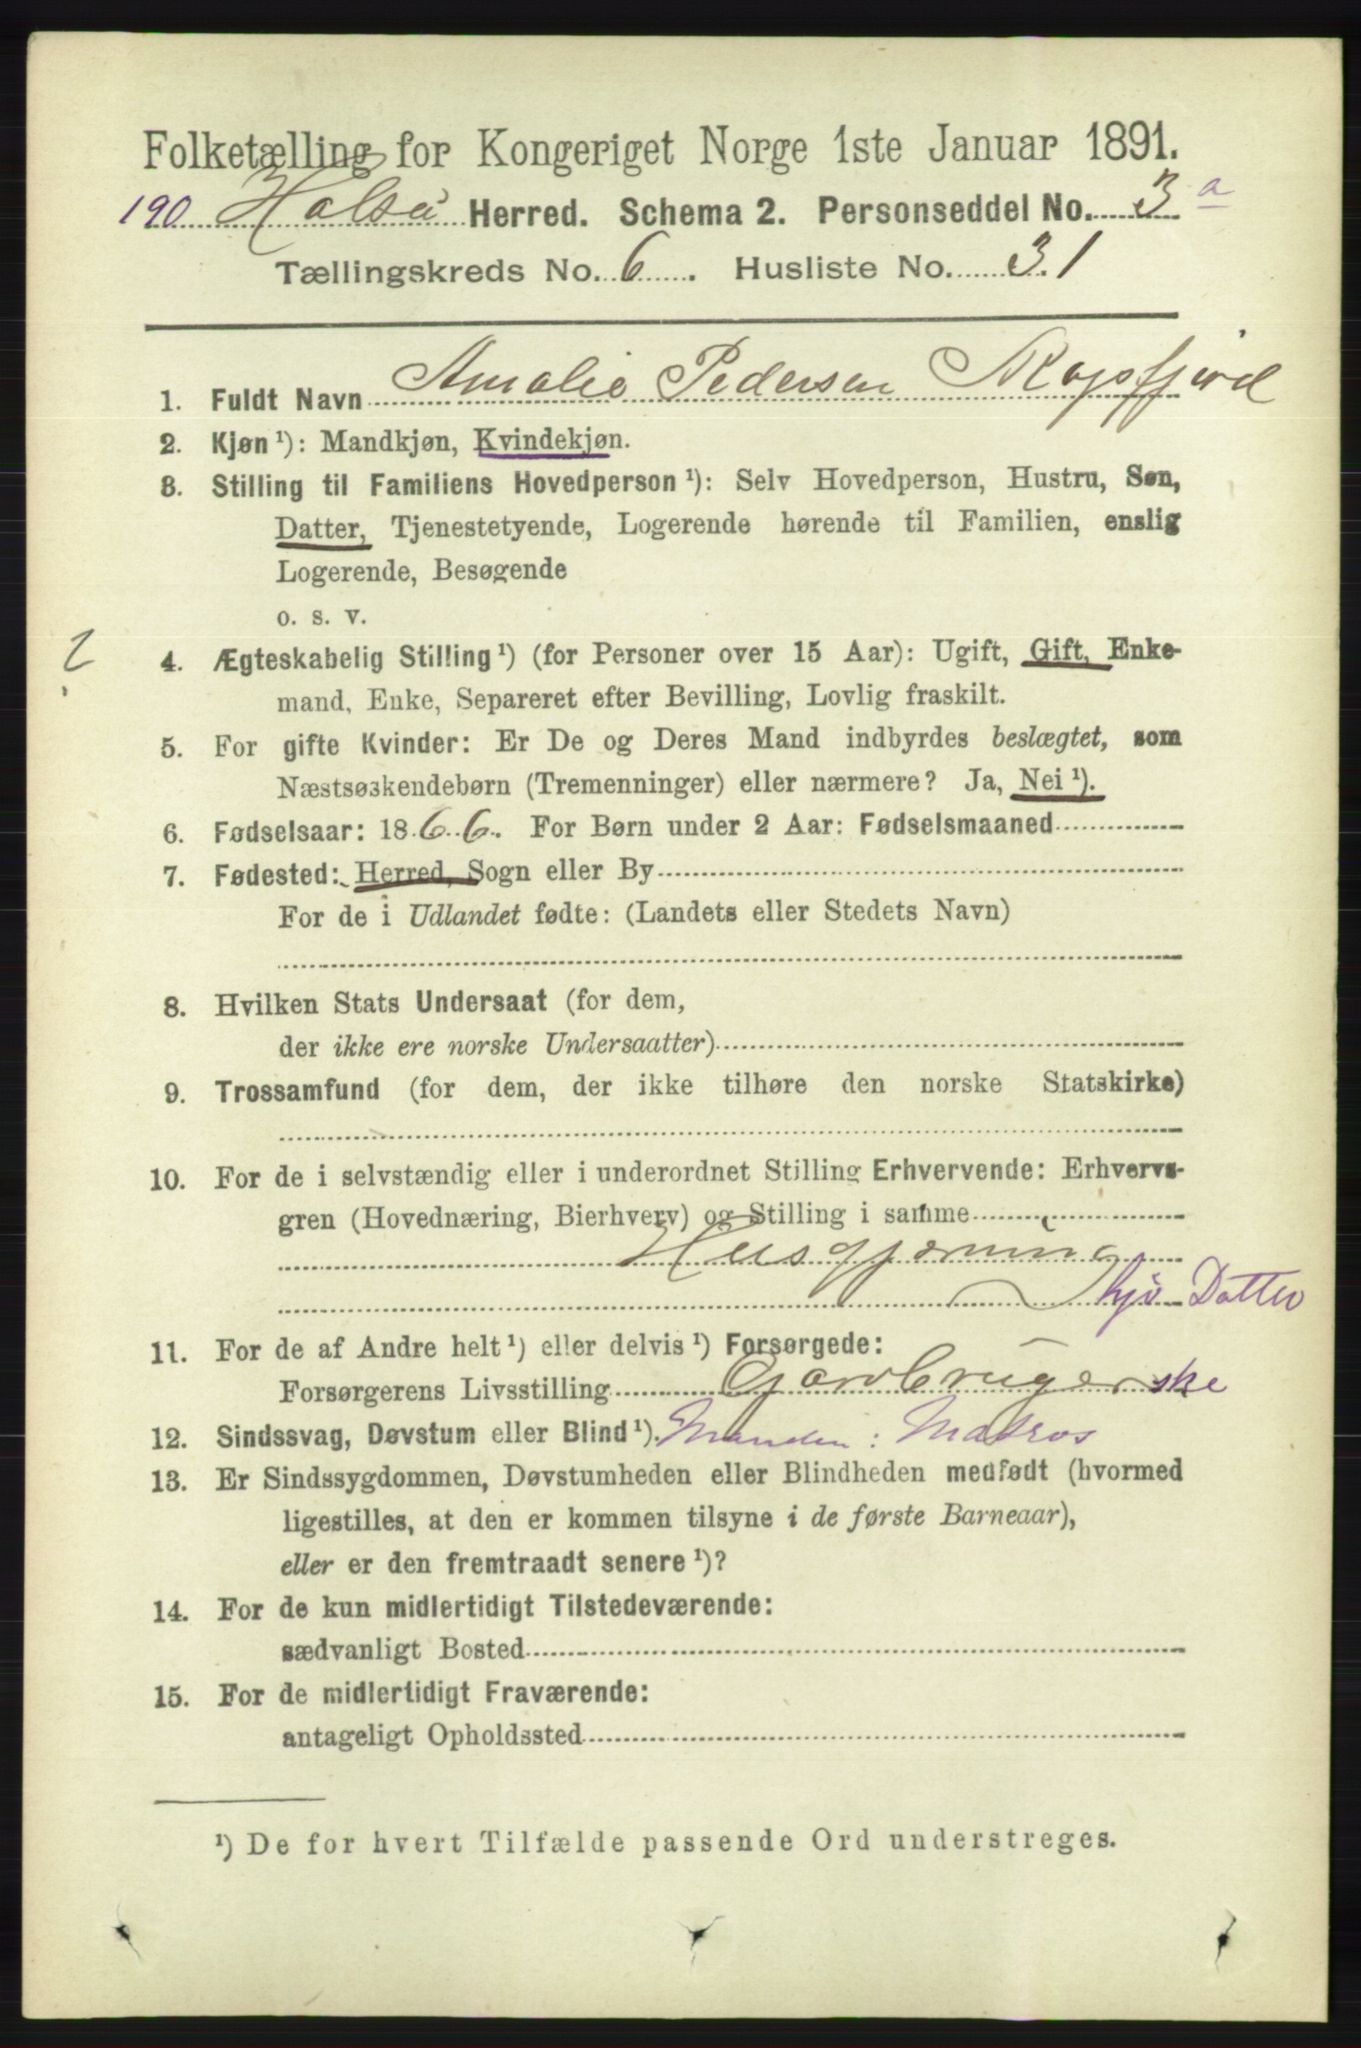 Folketælling for Kongeriget Norge 1ste Januar 1891.
190 Halsa Herred. Schema 2. Personseddel No. 3 a
Tællingskreds No. 6. Husliste No. 31
1. Fuldt Navn Amalie Pedersen
2. Kjøn ¹): Mandkjøn, Kvindekjøn.
3. Stilling til Familiens Hovedperson ¹): Selv Hovedperson, Hustru, Søn,
Datter, Tjenestetyende, Logerende hørende til Familien, enslig
Logerende, Besøgende
o. s. v.
?
4. Ægteskabelig Stilling ¹) (for Personer over 15 Aar): Ugift, Gift, Enke-
mand, Enke, Separeret efter Bevilling, Lovlig fraskilt.
5. For gifte Kvinder: Er De og Deres Mand indbyrdes beslægtet, som
Næstsøskendebørn (Tremenninger) eller nærmere? Ja, Nei ¹).
6. Fødselsaar: 1866. For Børn under 2 Aar: Fødselsmaaned
7. Fødested: Herred, Sogn eller By
For de i Udlandet fødte: (Landets eller Stedets Navn)
8. Hvilken Stats Undersaat (for dem,
der ikke ere norske Undersaatter)
9. Trossamfund (for dem, der ikke tilhøre den norske Statskirke)
10. For de i selvstændig eller i underordnet Stilling Erhvervende: Erhvervs-
gren (Hovednæring, Bierhverv) og Stilling i samme
Husgjerning
hjv Datter
11. For de af Andre helt ¹) eller delvis ¹) Forsørgede:
Forsørgerens Livsstilling Gaardbrugerske
12. Sindssvag, Døvstum eller Blind ¹). Manden: Matros
13. Er Sindssygdommen, Døvstumheden eller Blindheden medfødt (hvormed
ligestilles, at den er kommen tilsyne i de første Barneaar),
eller er den fremtraadt senere ¹)?
14. For de kun midlertidigt Tilstedeværende:
sædvanligt Bosted
15. For de midlertidigt Fraværende:
antageligt Opholdssted
¹) De for hvert Tilfælde passende Ord understreges.